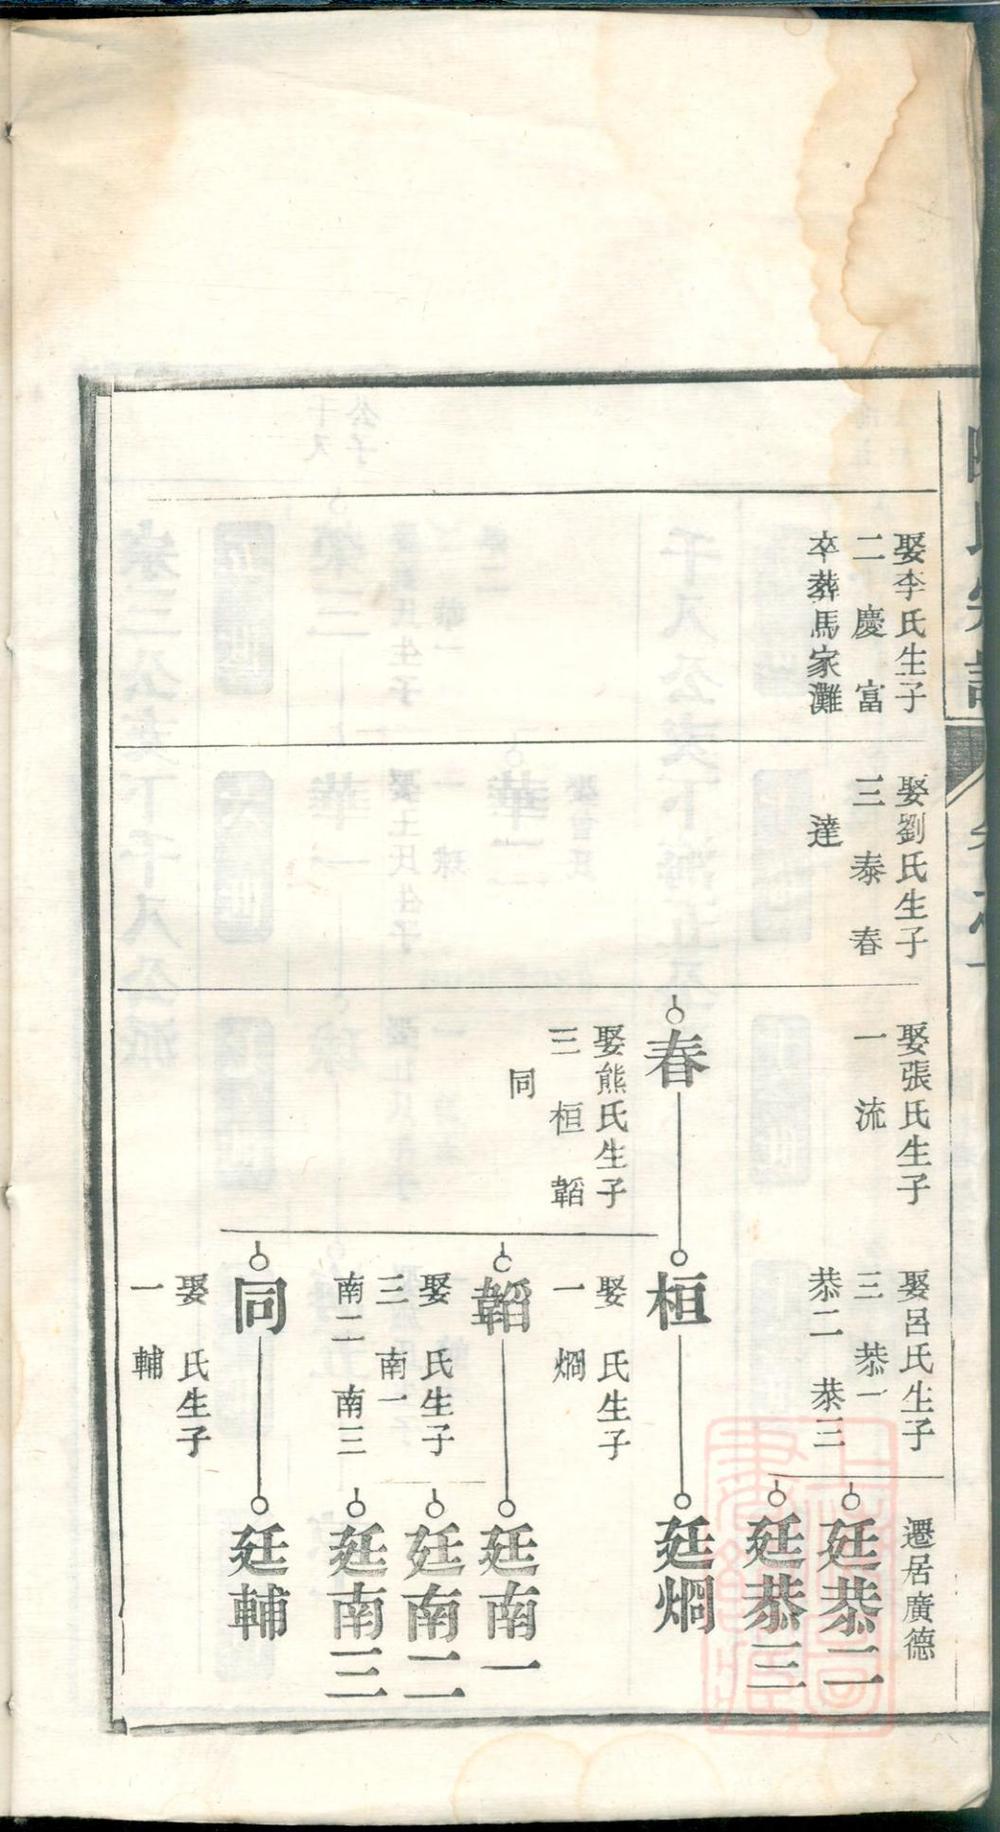 娶李氏生子
二 慶 富
卒葬馬家灘
娶劉氏生子
三 泰 春
達
娶張氏生子
一 流
春
娶熊氏生子
三 桓 韜
同
娶呂氏生子
三 恭一
恭二 恭三
桓
娶 氏生子
一 烱
韜
娶 氏生子
三 南一
南二 南三
同
娶 氏生子
一 輔
遷居廣德
廷恭二
廷恭三
廷烱
廷南一
廷南二
廷南三
廷輔